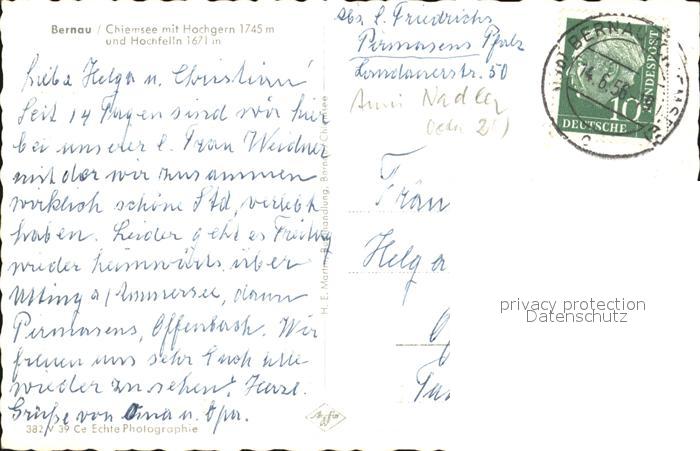 Bernau / Chiemsee mit Hochgern 1745 m
und Hochfelln 1671 m
Liebe Helga u. Christian!
Seit 14 Tagen sind wir hier
bei unserer l. Frau Weidner
mit der wir zusammen
wirklich schöne Std. verlebt
haben. Leider geht es Freitag
wieder heimwärts über
Utting a/Ammersee, dann
Pirmasens, Offenbach. Wir
freuen uns sehr Euch alle
wieder zu sehen! Herzl.
Grüße von Oma u. Opa.
382 V 39 Ce Echte Photographie
H. E. Martin, Buchhandlung, Bernau/Chiemsee
Abs. E. Friedrichs
Pirmasens Pfalz
Landauerstr. 50
Nadler
BERNAU
14.6.56
DEUTSCHE
BUNDESPOST
10
Fräu
Helga
privacy protection
Datenschutz